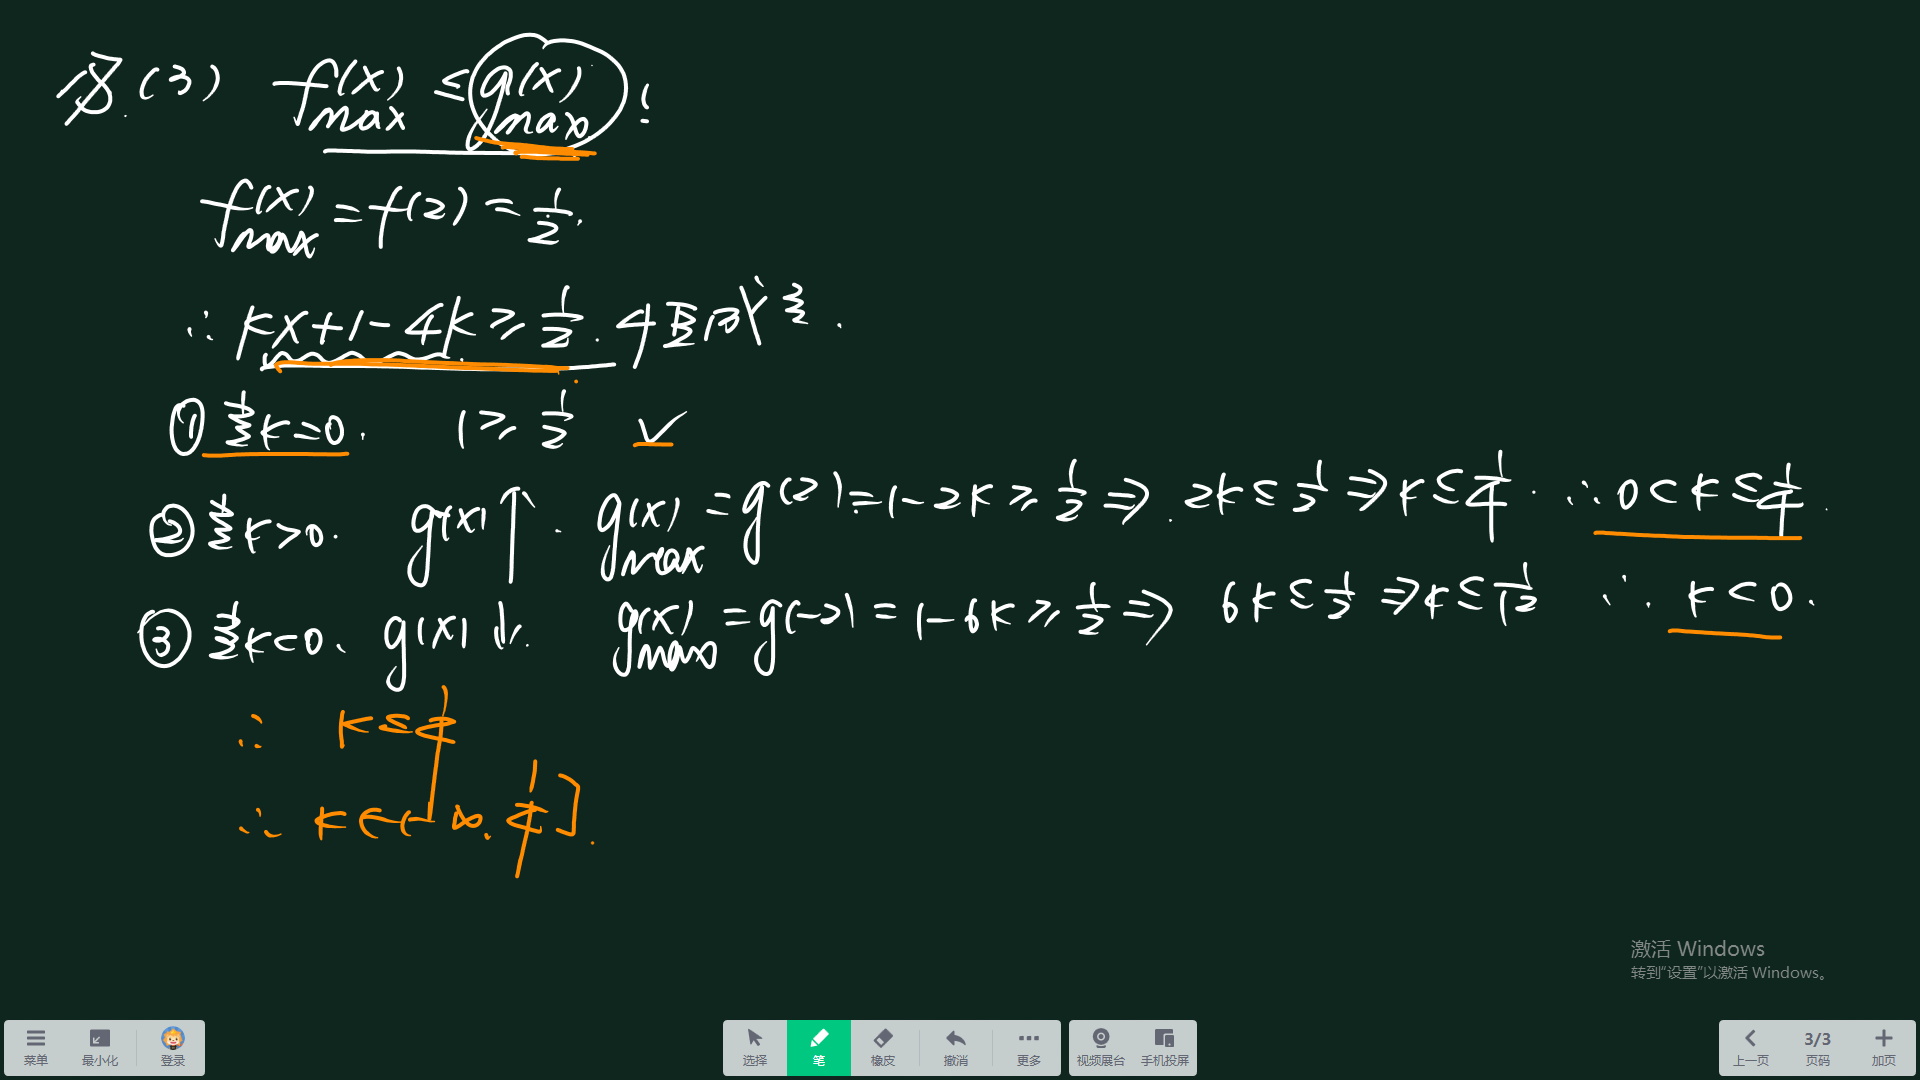 (3) f(x)max ≤ g(x)max !
f(x)max = f(2) = 1/2.
∴ kx+1-4k ≥ 1/2.
① 当k=0. 1 ≥ 1/2 ✓
② 当k>0. g(x)↑. g(x)max = g(2) = 1-2k ≥ 1/2 ⇒ 2k ≤ 1/2 ⇒ k ≤ 1/4. ∴ 0<k≤1/4.
③ 当k<0、g(x)↓. g(x)max = g(-2) = 1-6k ≥ 1/2 ⇒ 6k ≤ 1/2 ⇒ k ≤ 1/12 ∴ k<0.
∴ k ≤ 1/4
∴ k∈(-∞, 1/4].
激活 Windows
转到“设置”以激活 Windows。
菜单 最小化 登录 选择 笔 橡皮 撤消 更多 视频展台 手机投屏 上一页 3/3 页码 加页